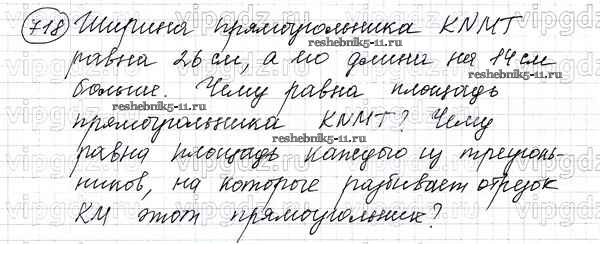 718 Ширина прямоугольника KNMT
равна 26 см, а его длина на 14 см
больше. Чему равна площадь
прямоугольника KNMT? Чему
равна площадь каждого из треуголь-
ников, на которые разбивает отрезок
KM этот прямоугольник?
reshebnik5-11.ru
reshebnik5-11.ru
reshebnik5-11.ru